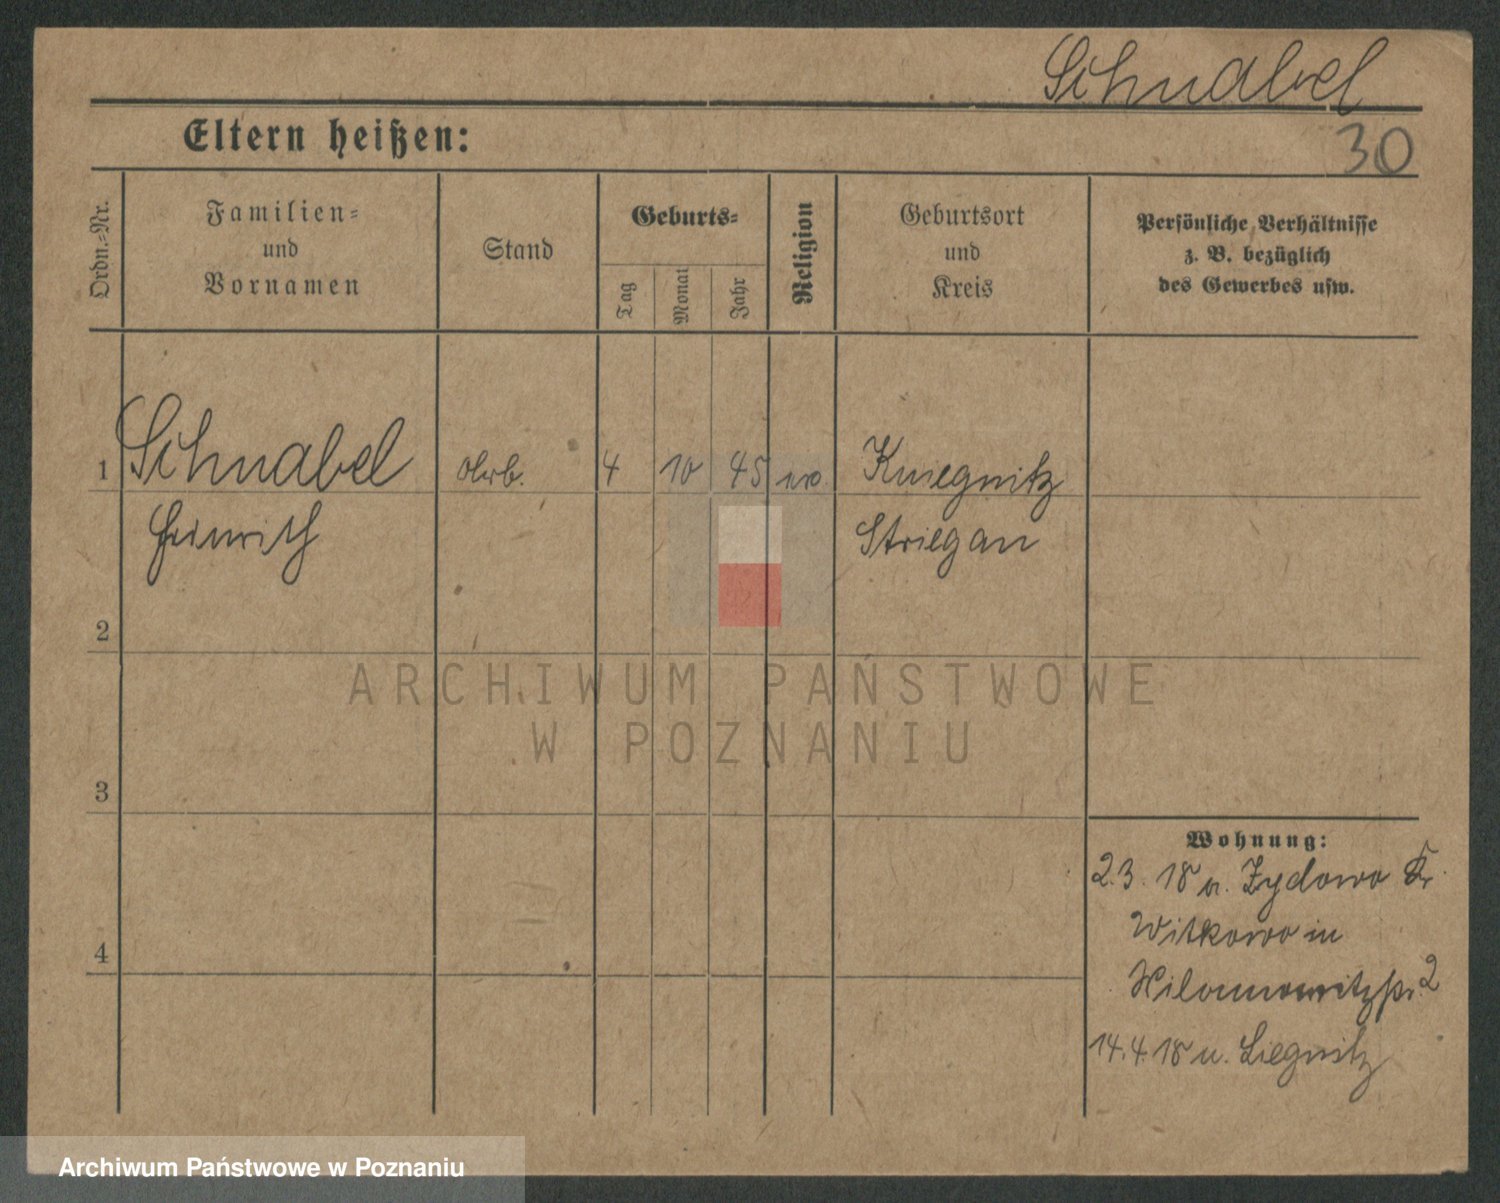 Schnabel
Eltern heißen:
30
Ordn.=Nr.
Familien=
und
Vornamen
Stand
Geburts=
Tag
Monat
Jahr
Religion
Geburtsort
und
Kreis
Persönliche Verhältnisse
z. B. bezüglich
des Gewerbes usw.
1 Schnabel Arb. 4 10 45 Kniegnitz
Heinrich Striegau
2
3
Wohnung:
2.3. 18 v. Zydowo Kr.
Witkowo in
4
2
14.4.18 n. Liegnitz
ARCHIWUM PAŃSTWOWE
W POZNANIU
Archiwum Państwowe w Poznaniu